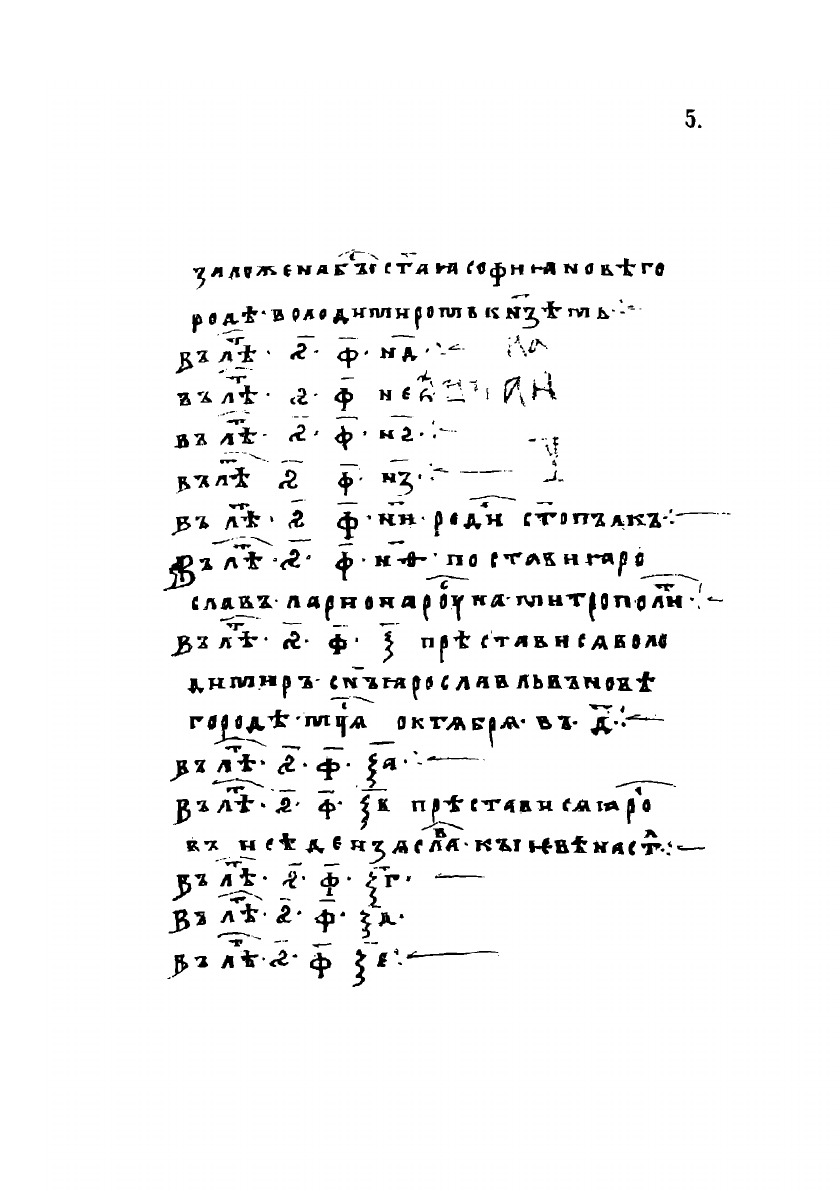 5.
заложенабъⷭ҇ ст҃аꙗсофиꙗновѣго
родѣ·володимиромькн҃ѕѣмь·:
Въ лѣⷮ· ѕ҃· ф҃· нд҃·:
въ лѣⷮ· ѕ҃· ф҃ не
въ лѣⷮ· ѕ҃· ф҃· нѕ·:
въ лѣⷮ ѕ҃ ф҃· нз҃·:
Въ лѣⷮ· ѕ҃ ф҃· нн҃· родиⷭ ст҃опълкъ·:
Въ лѣⷮ· ѕ҃· ф҃· нѳ҃· поставиꙗро
славъ·ларионароуⷭ на·митрополиⷮ·:
Въ лѣⷮ· ѕ҃· ф҃· ѯ҃ прѣстависѧволо
димиръ·сн҃ъꙗрославльвъновѣ
городѣ·мцⷭѧ октѧбрѧ·въ·д҃·:
Въ лѣⷮ· ѕ҃· ф҃· ѯа҃·:
Въ лѣⷮ· ѕ҃· ф҃· ѯв прѣстависѧꙗроⷭ
въ нсѣденѕѧслаⷡ·кыѥвѣнастⷧ·:
Въ лѣⷮ· ѕ҃· ф҃· ѯг҃·
Въ лѣⷮ· ѕ҃· ф҃· ѯд·
Въ лѣⷮ· ѕ҃· ф҃ ѯе·: